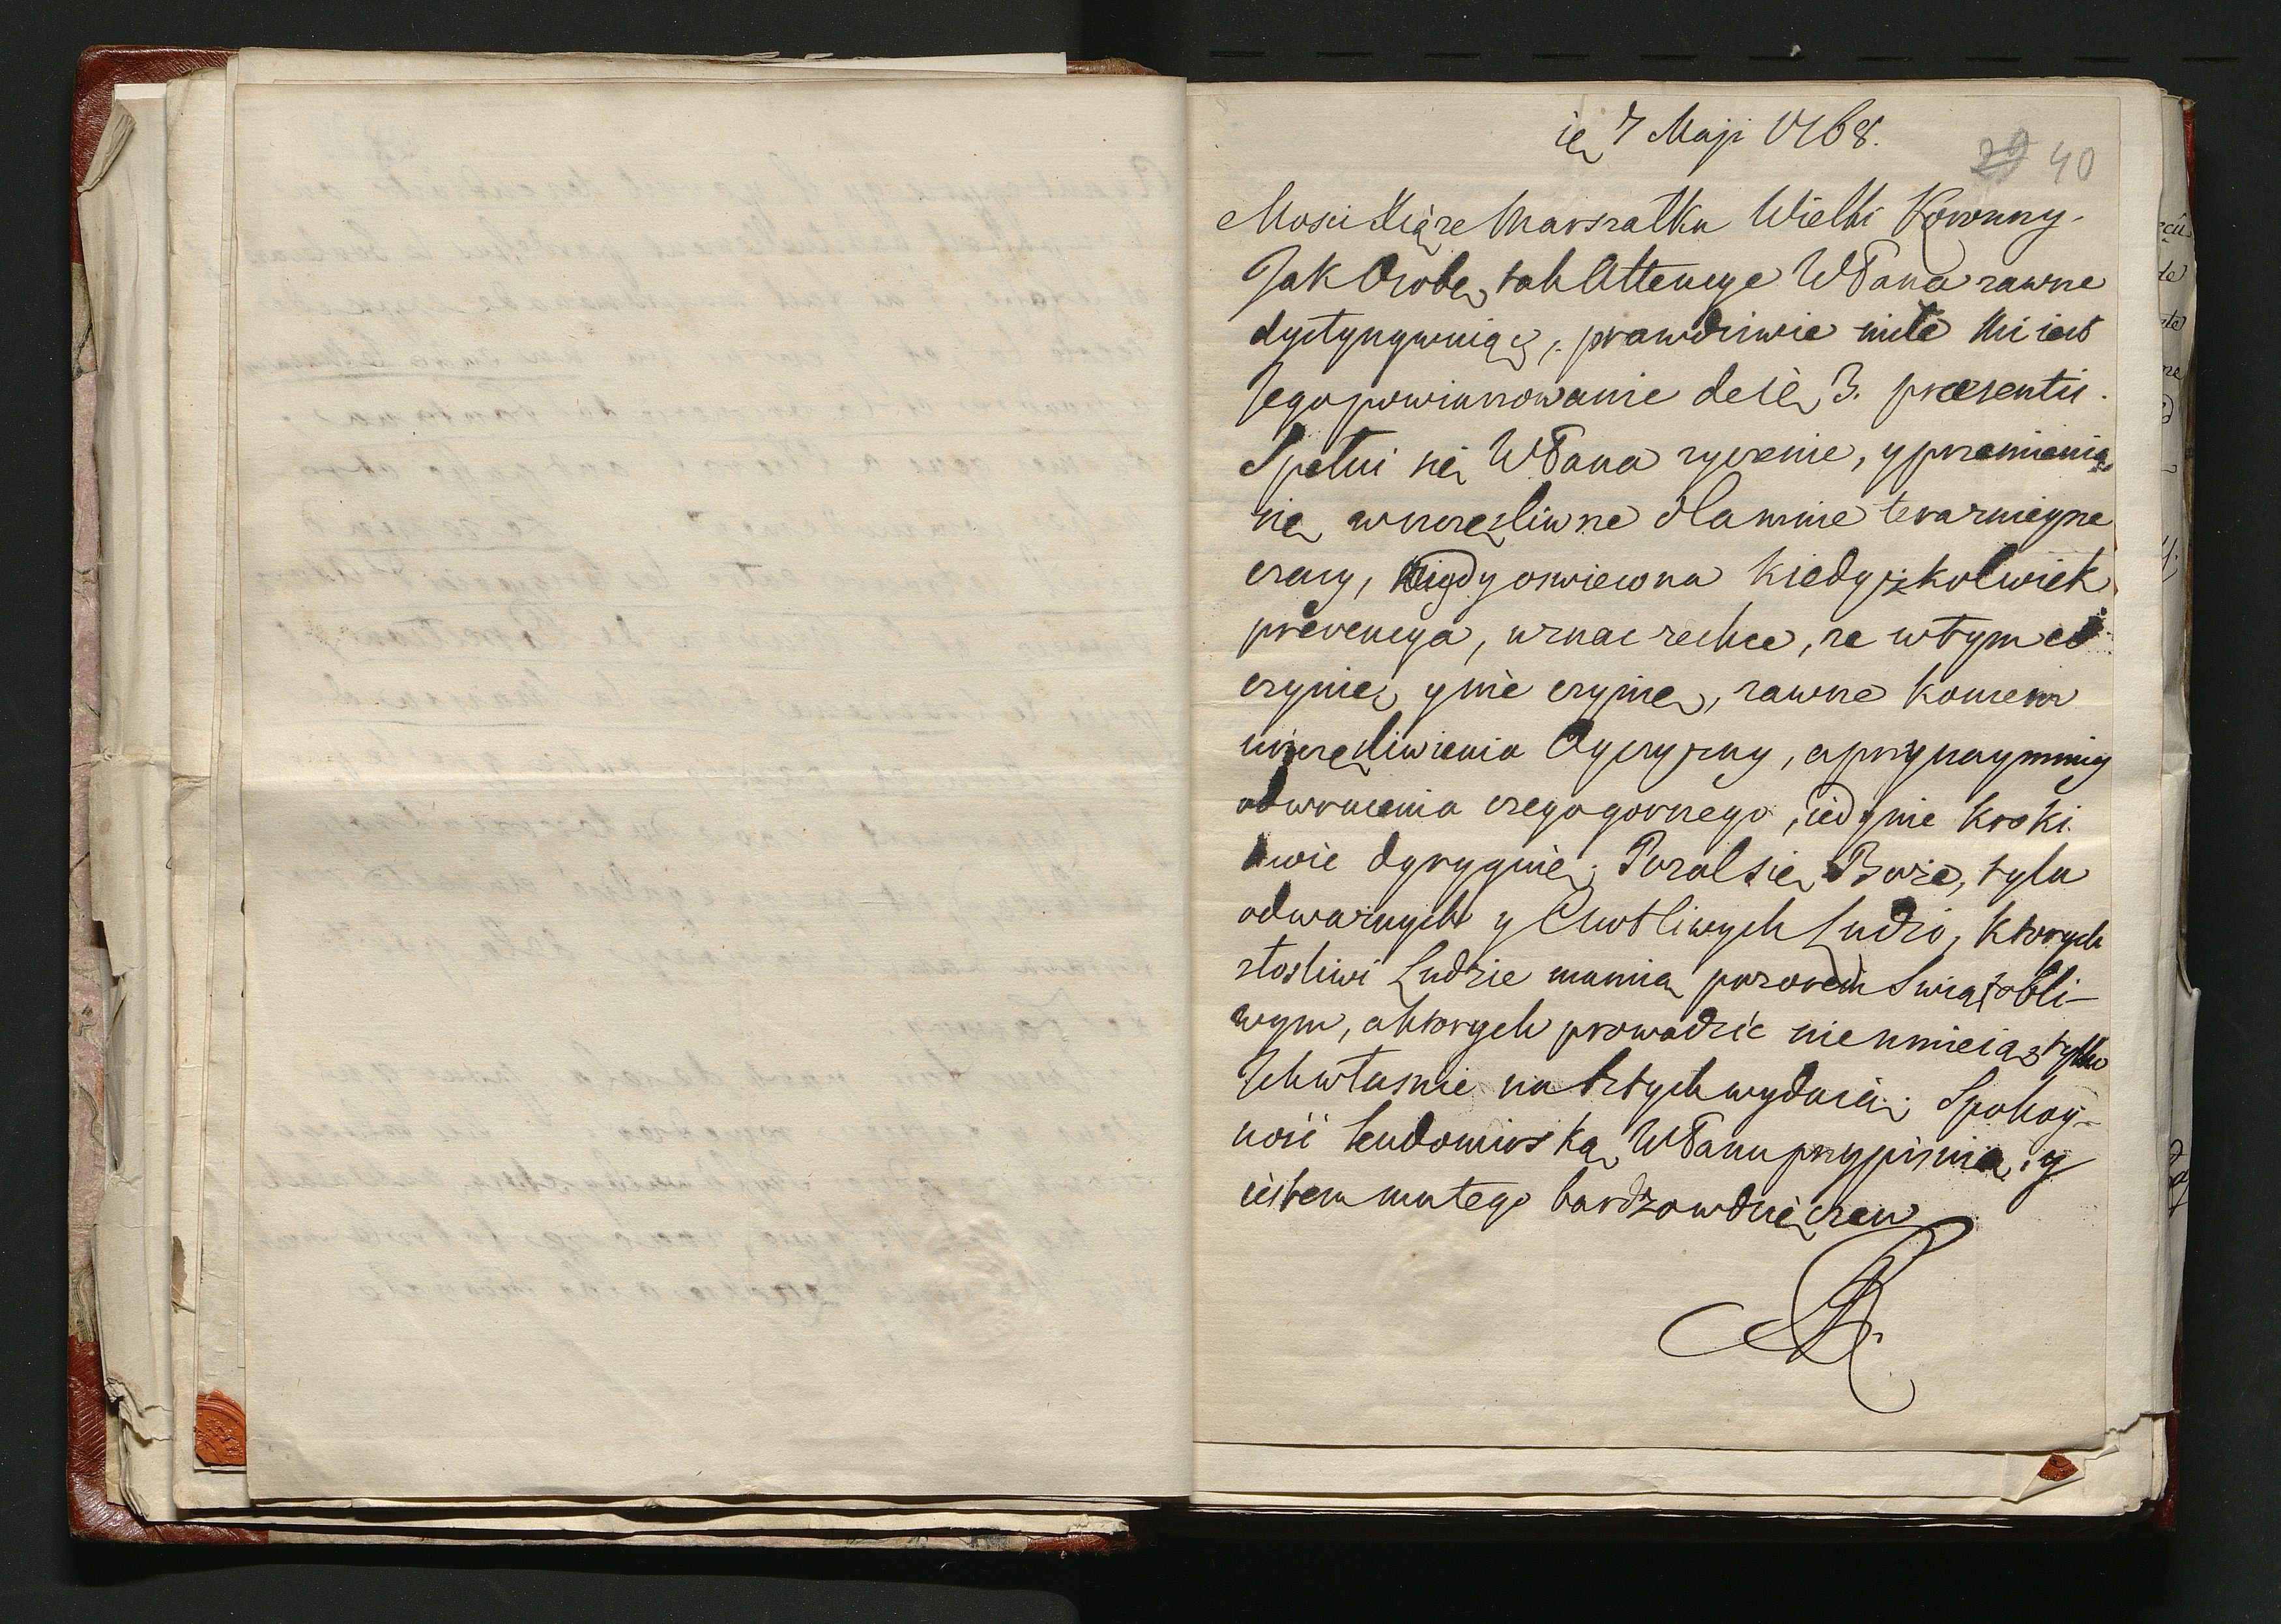 7 Maji 1768.
29 40
Mosci Xiąze Marszałku Wielki Koronny.
Jak Osobę tak Attencye WPana zawsze
dystyngwuiąc, prawdziwie miłe Mi iest
Jego powinszowanie de 3. præsentis.
Spełni się WPana zyczenie, y przemienią
się w szczęsliwsze dla mnie teraznieysze
czasy, kiedy oswiecona kiedyzkolwiek
prewencya, uznac zechce, ze w tym co
czynię y nie czynię, zawsze koncem
uszczęsliwienia Oyczyzny, a przynaymniey
odwrucenia czego gorszego, iedynie kroki
swie dyryguię. Pozal się Boze, tylu
odwaznych y Cnotliwych Ludzi, ktorych
złosliwi Ludzie mamią pozorem swiątobli-
wym, a ktorych prowadzic nie umieią tylko
Ich własnie na sztych wydaią. Spokoy-
nosć Sendomirską WPanu przypisuię, y
iestem mu tego bardzo wdzięczen